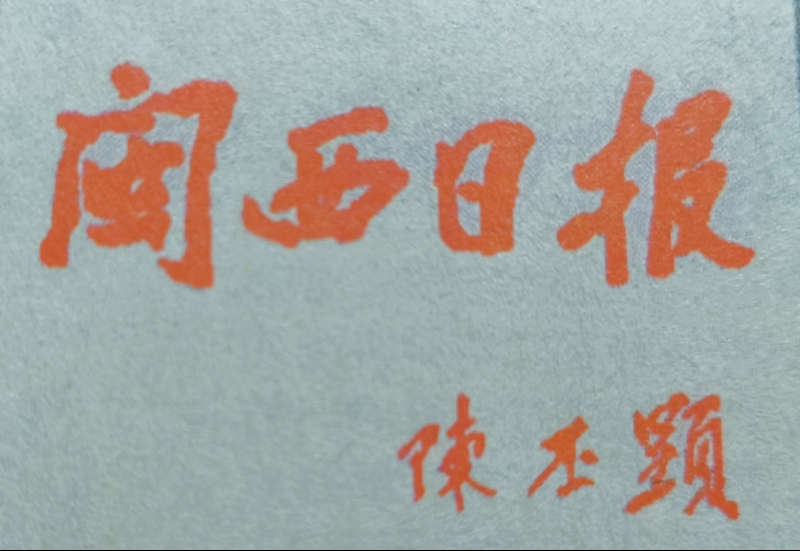 闽西日报
陳丕顯